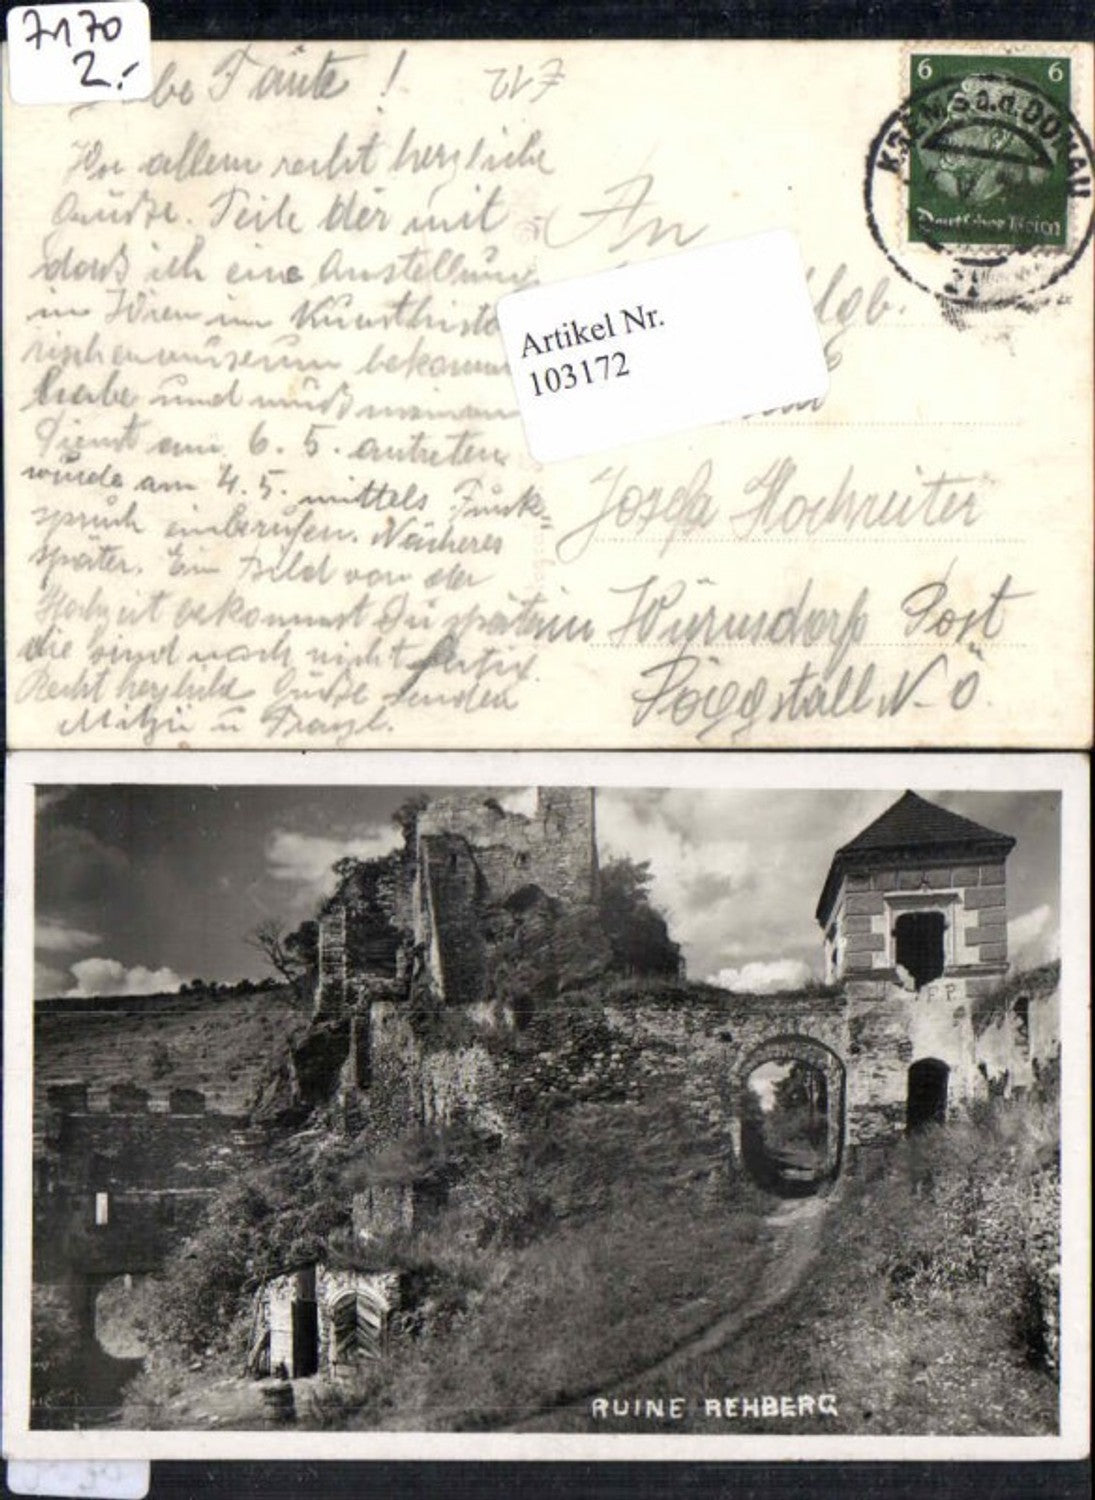 7170
2.-
Liebe Tante!
717
Vor allem recht herzliche
Grüße. Teile dir mit
daß ich eine Anstellung
in Wien im Kunsthisto
rischenmuseum bekommen
habe und muß meinen
Dienst am 6. 5. antreten
wurde am 4. 5. mittels Funk-
spruch einberufen. Näheres
später. Ein Bild von der
Hochzeit bekommst Du später
die sind noch nicht fertig.
Recht herzliche Grüße senden
Mitzi u Franzl.
6 6
KREMS a.d. DONAU
Deutsches Reich
An
Artikel Nr.
103172
Hgb.
Josefa Hochreiter
in Würnsdorf Post
Pöggstall N.Ö.
F P
RUINE REHBERG